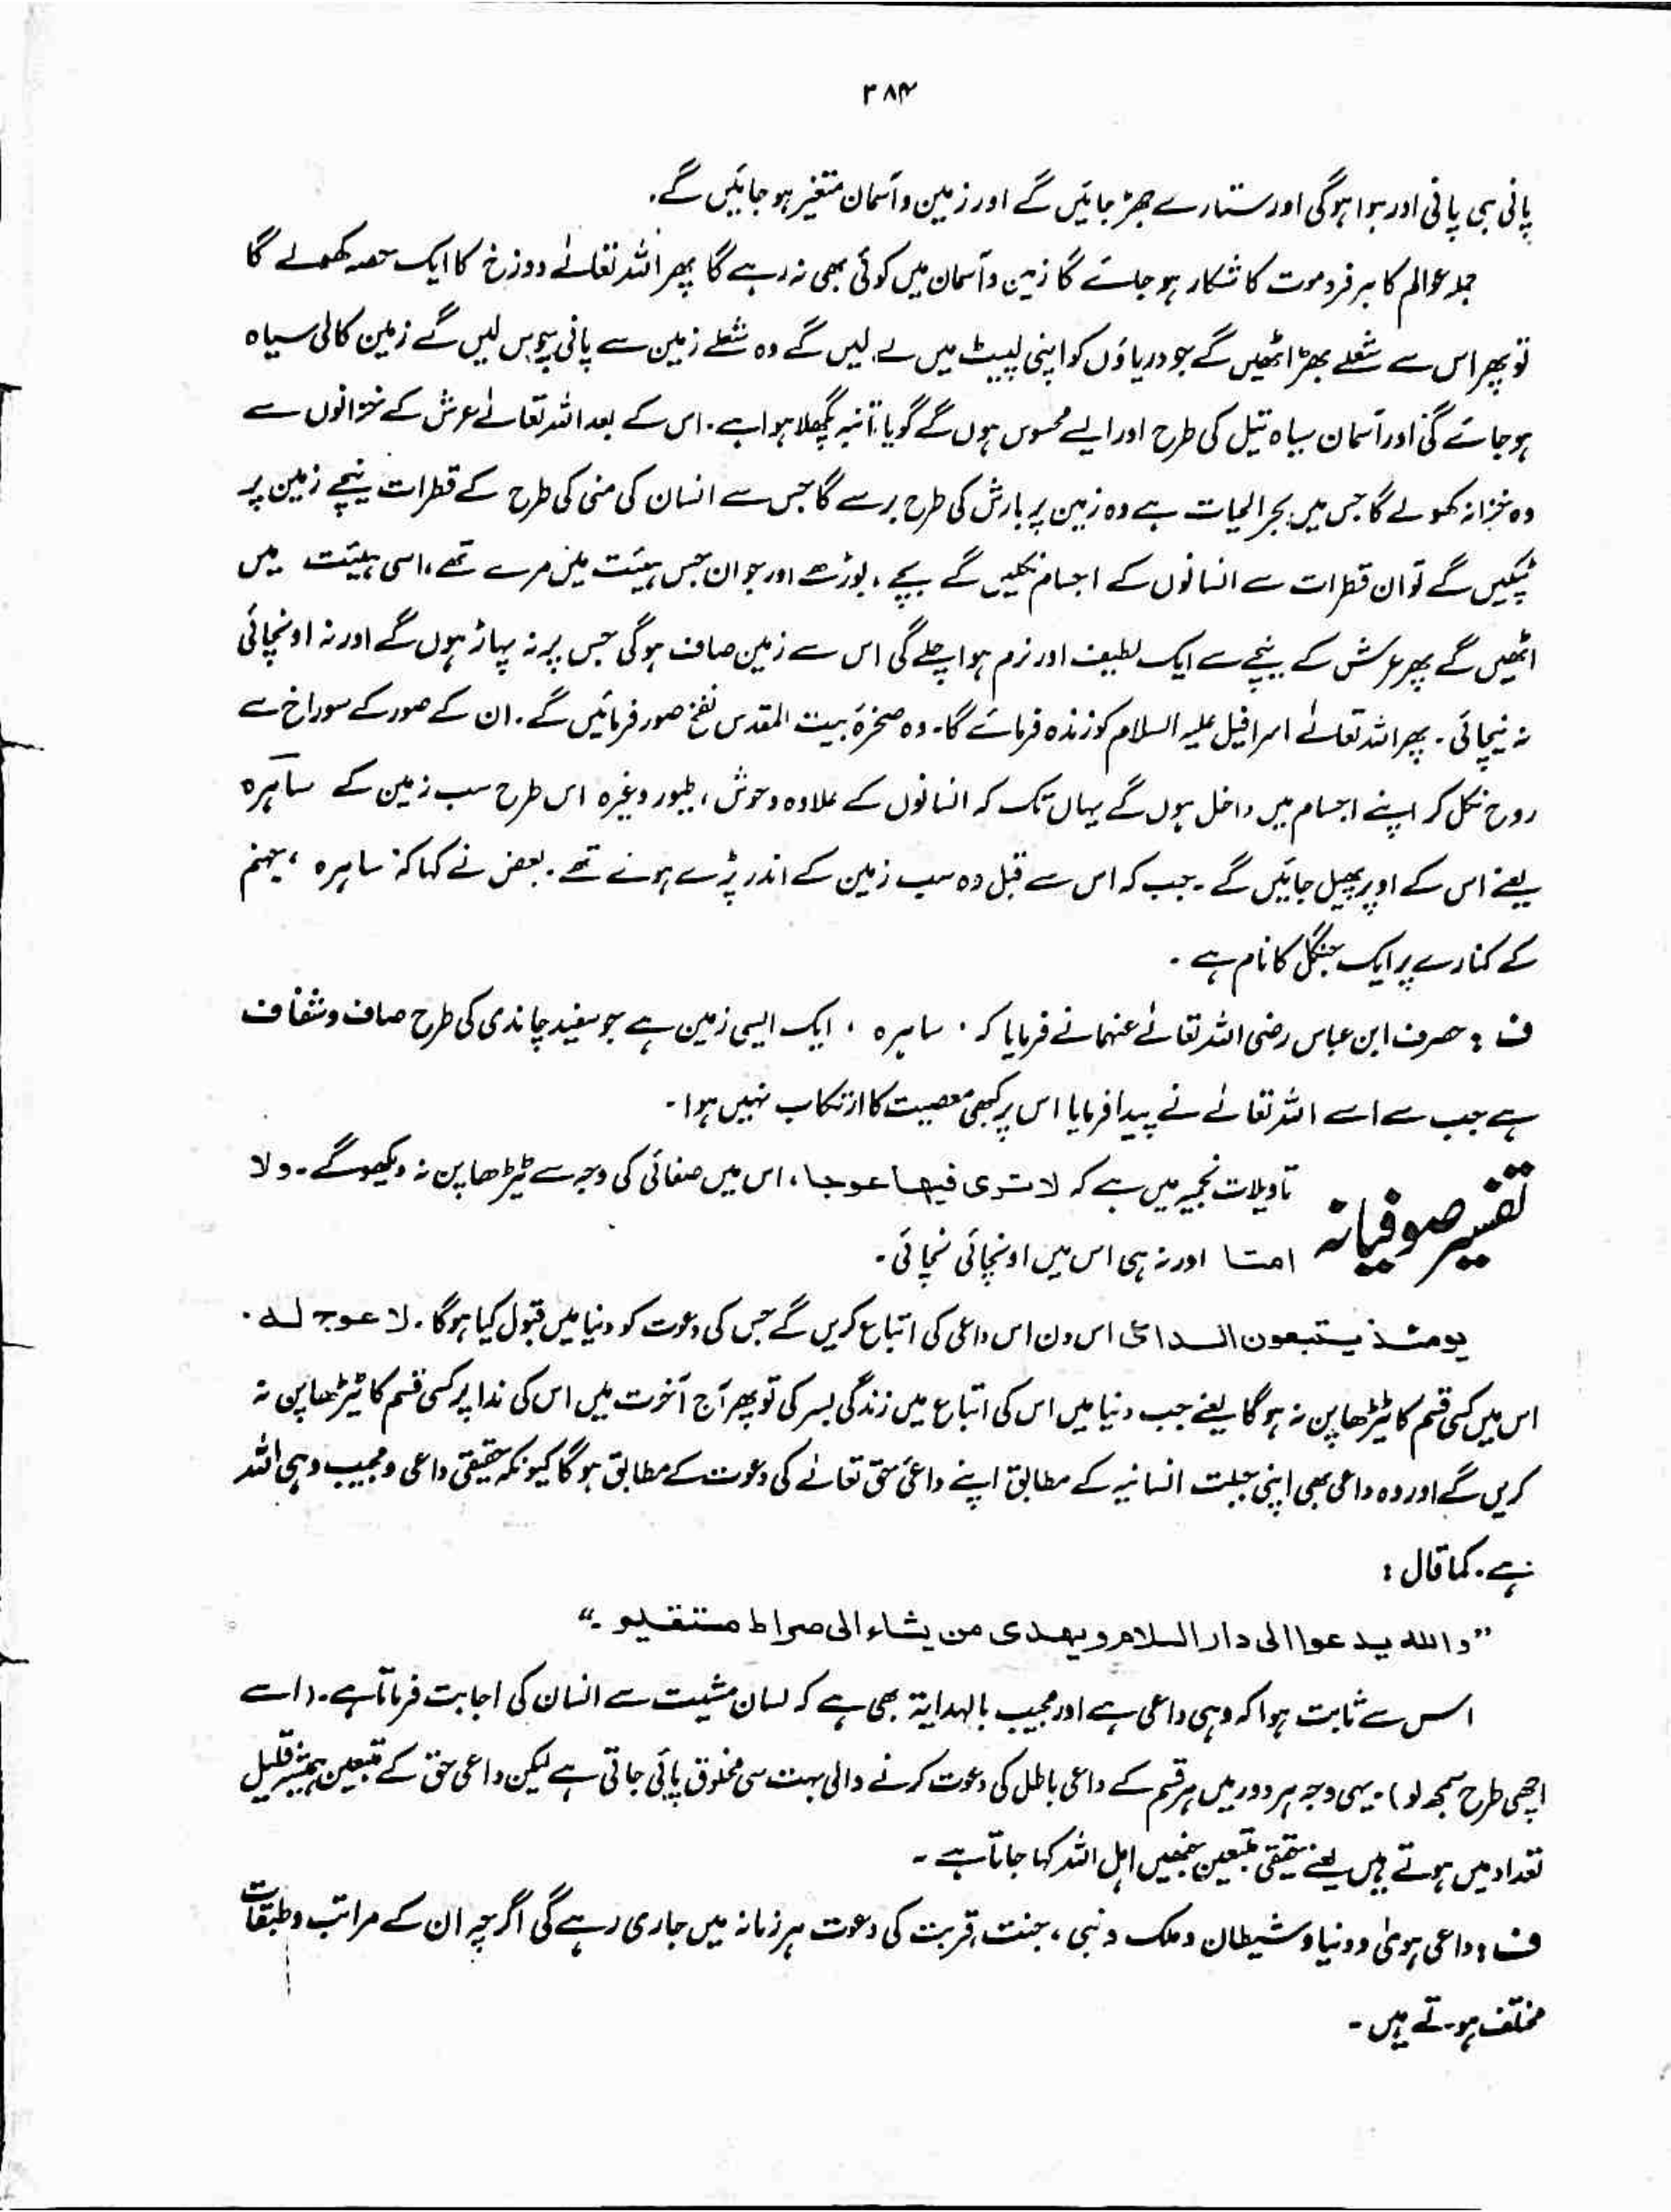 ۳۸۴
پانی ہی پانی اور ہوا ہوگی اور ستارے جھڑ جائیں گے اور زمین و آسمان متغیر ہو جائیں گے.
جملہ عوالم کا ہر فرد موت کا شکار ہو جائے گا زمین و آسمان میں کوئی بھی نہ رہے گا پھر اللہ تعالےٰ دوزخ کا ایک حصہ کھولے گا
تو پھر اس سے شعلے بھڑ اٹھیں گے جو دریاؤں کو اپنی لپیٹ میں لے لیں گے وہ شعلے زمین سے پانی چوس لیں گے زمین کالی سیاہ
ہو جائے گی اور آسمان سیاہ تیل کی طرح اور ایسے محسوس ہوں گے گویا تانبہ پگھلا ہوا ہے۔ اس کے بعد اللہ تعالےٰ عرش کے خزانوں سے
وہ خزانہ کھولے گا جس میں بحر الحیات ہے وہ زمین پر بارش کی طرح برسے گا جس سے انسان کی منی کی طرح کے قطرات نیچے زمین پر
ٹپکیں گے تو ان قطرات سے انسانوں کے اجسام نکلیں گے بچے، بوڑھے اور جوان جس ہیئت میں مرے تھے، اسی ہیئت میں
اٹھیں گے پھر عرش کے نیچے سے ایک لطیف اور نرم ہوا چلے گی اس سے زمین صاف ہوگی جس پر نہ پہاڑ ہوں گے اور نہ اونچائی
نہ نیچائی۔ پھر اللہ تعالےٰ اسرافیل علیہ السلام کو زندہ فرمائے گا۔ وہ صخرۂ بیت المقدس نفخ صور فرمائیں گے۔ ان کے صور کے سوراخ سے
روح نکل کر اپنے اجسام میں داخل ہوں گے یہاں تک کہ انسانوں کے علاوہ وحوش، طیور وغیرہ اس طرح سب زمین کے ساہرہ
یعنے اس کے اوپر پھیل جائیں گے۔ جب کہ اس سے قبل وہ سب زمین کے اندر پڑے ہوئے تھے۔ بعض نے کہا کہ ساہرہ، جہنم
کے کنارے پر ایک جنگل کا نام ہے۔
ف : حضرت ابن عباس رضی اللہ تعالےٰ عنہما نے فرمایا کہ ، ساہرہ ، ایک ایسی زمین ہے جو سفید چاندی کی طرح صاف و شفاف
ہے جب سے اسے اللہ تعالےٰ نے پیدا فرمایا اس پر کبھی معصیت کا ارتکاب نہیں ہوا۔
تفسیر صوفیانہ تاویلات نجمیہ میں ہے کہ لا تری فیہا عوجا، اس میں صفائی کی وجہ سے ٹیڑھا پن نہ دیکھو گے۔ و لا
امتا اور نہ ہی اس میں اونچائی نچائی۔
یومئذ یتبعون الداعی اس دن اس داعی کی اتباع کریں گے جس کی دعوت کو دنیا میں قبول کیا ہوگا۔ لا عوج لہ۔
اس میں کسی قسم کا ٹیڑھا پن نہ ہوگا یعنے جب دنیا میں اس کی اتباع میں زندگی بسر کی تو پھر آج آخرت میں اس کی ندا پر کسی قسم کا ٹیڑھا پن نہ
کریں گے اور وہ داعی بھی اپنی جبلت انسانیہ کے مطابق اپنے داعئ حق تعالےٰ کی دعوت کے مطابق ہوگا کیونکہ حقیقی داعی و مجیب وہی اللہ
ہے۔ کما قال :
”واللہ یدعوا الی دار السلام و یھدی من یشاء الی صراط مستقیم۔“
اس سے ثابت ہوا کہ وہی داعی ہے اور مجیب بالہدایۃ بھی ہے کہ لسان مشیت سے انسان کی اجابت فرماتا ہے۔ (اسے
اچھی طرح سمجھ لو)۔ یہی وجہ ہر دور میں ہر قسم کے داعی باطل کی دعوت کرنے والی بہت سی مخلوق پائی جاتی ہے لیکن داعی حق کے متبعین ہمیشہ قلیل
تعداد میں ہوتے ہیں یعنے حقیقی متبعین جنھیں اہل اللہ کہا جاتا ہے۔
ف : داعی ہویٰ و دنیا و شیطان و ملک و نبی، جنت، قربت کی دعوت ہر زمانہ میں جاری رہے گی اگرچہ ان کے مراتب و طبقات
مختلف ہوتے ہیں۔